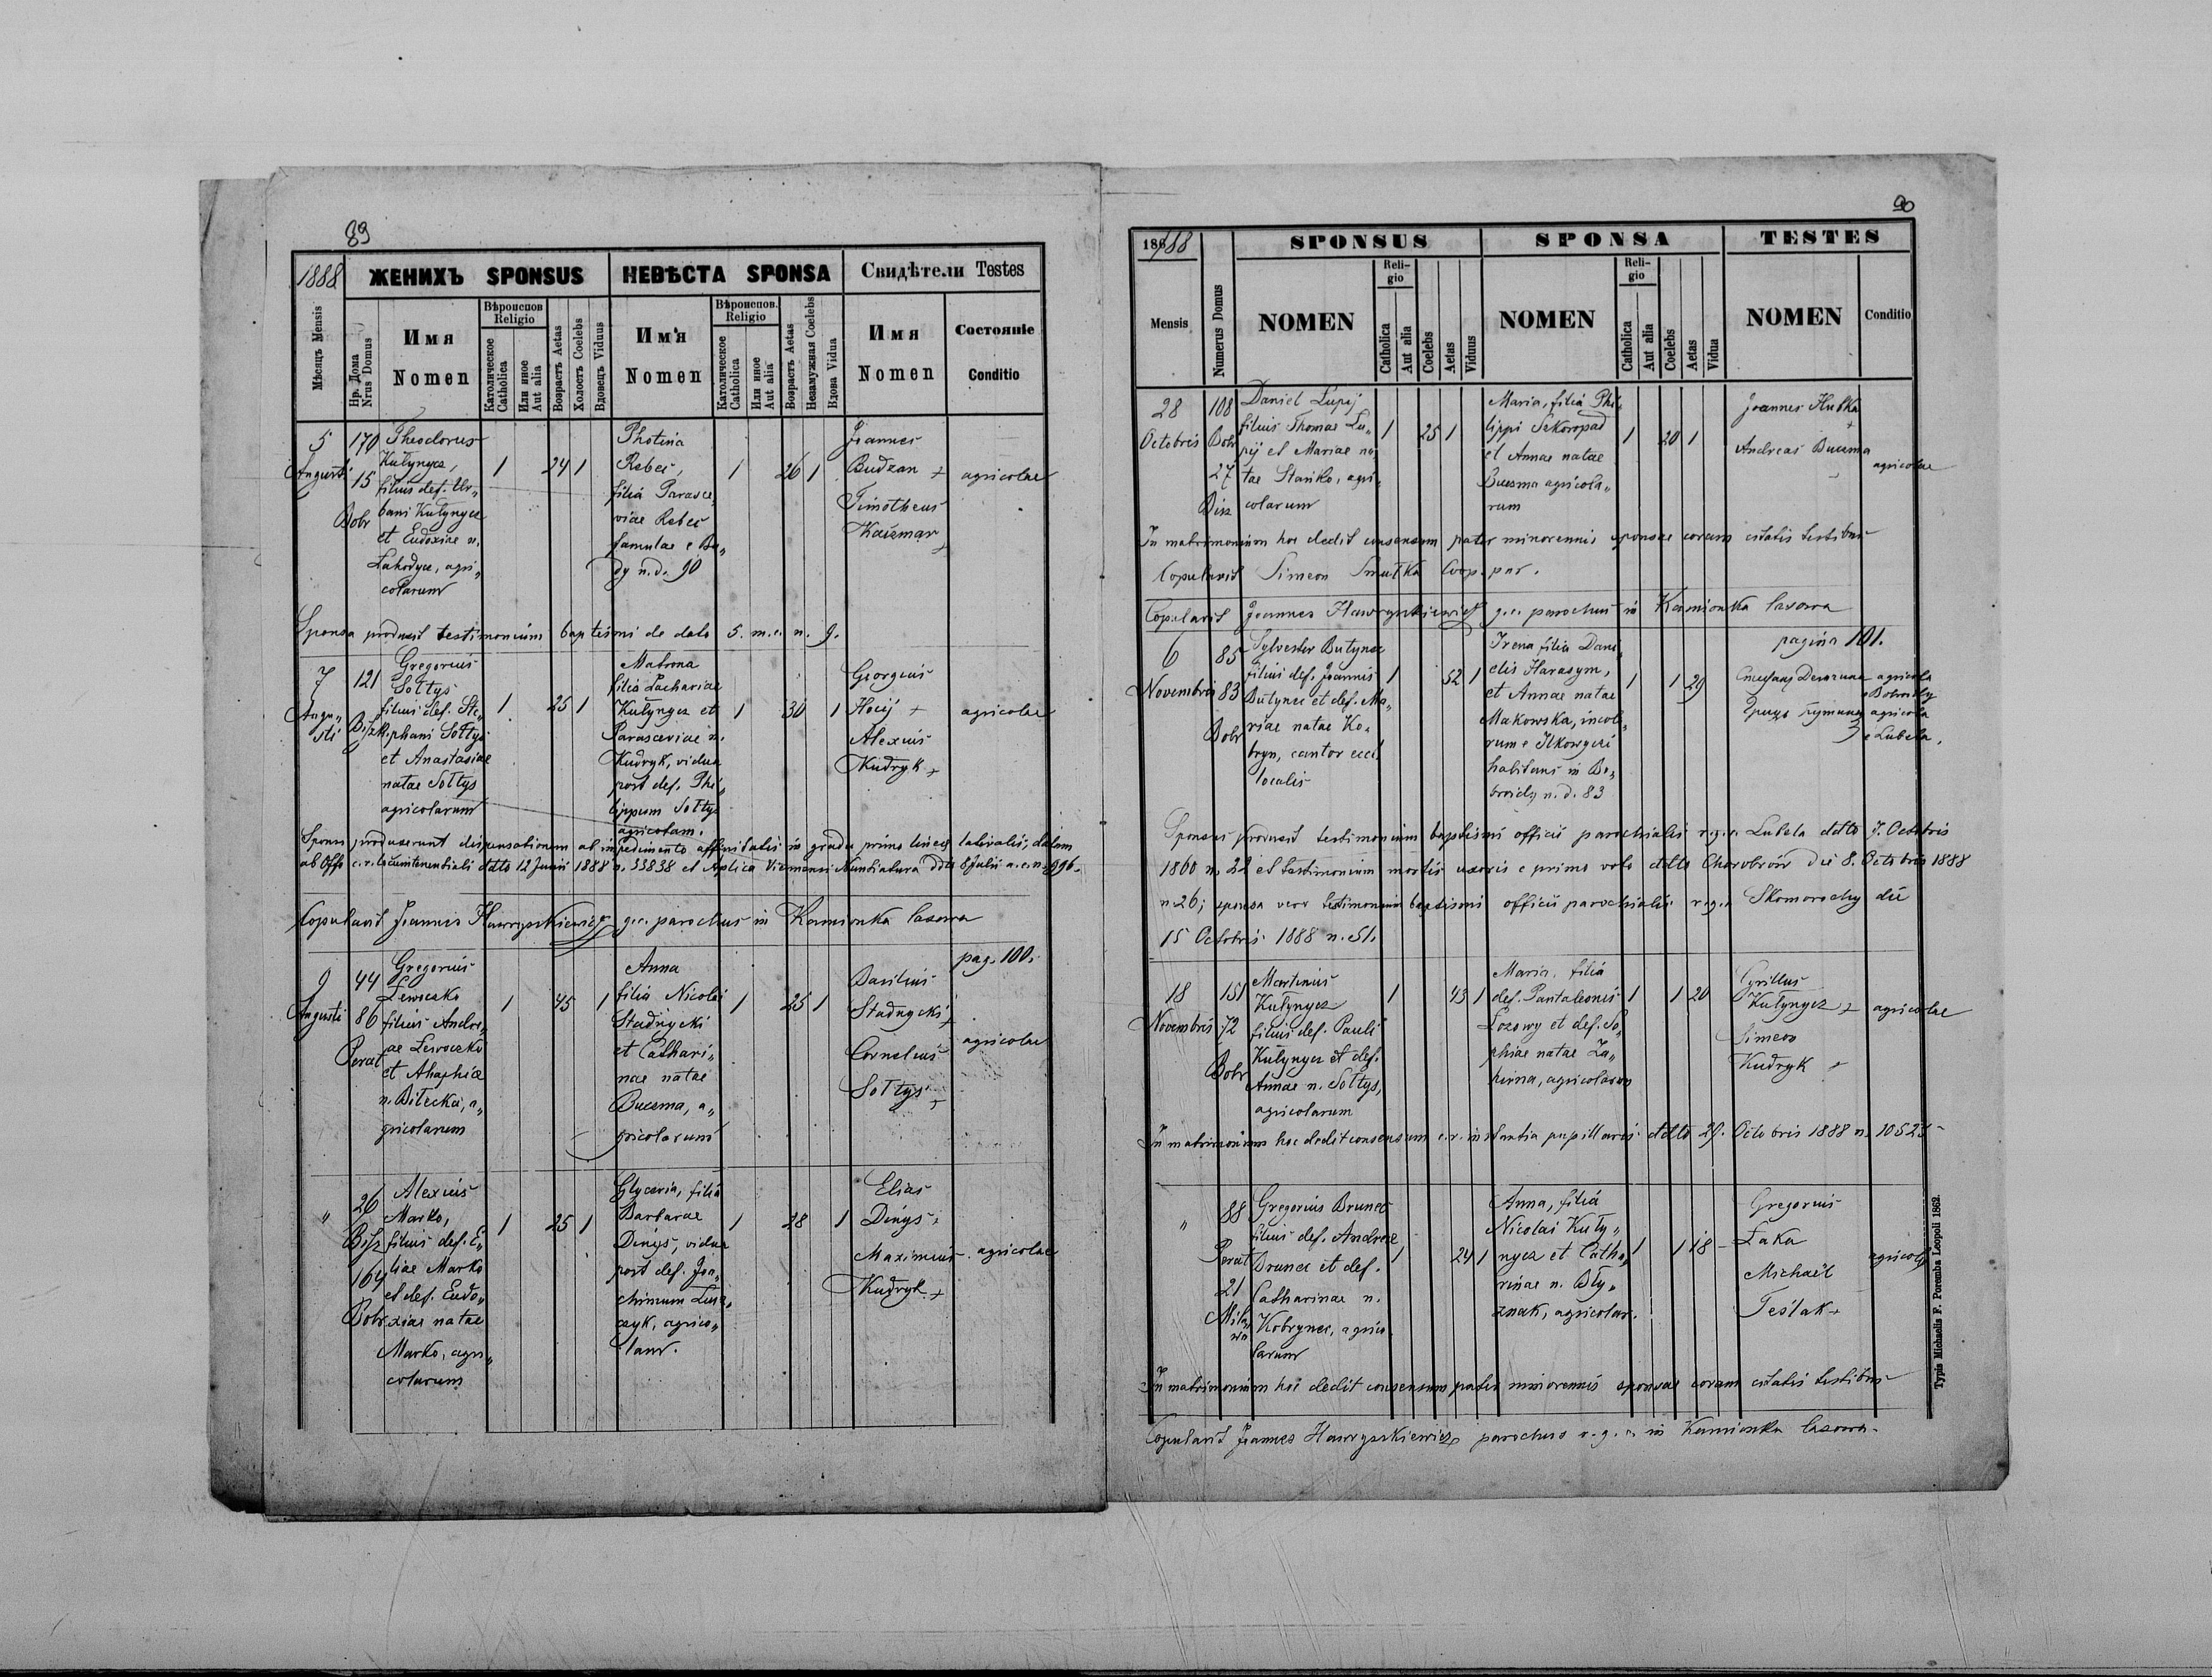 89
1888
ЖЕНИХЪ SPONSUS
НЕВѢСТА SPONSA
Свидѣтели Testes
Мѣсяцъ Mensis
Нр. Дома
Nrus Domus
Имя
Nomen
Вѣроиспов
Religio
Католическое
Catholica
Или иное
Aut alia
Возрастъ Aetas
Холостъ Coelebs
Вдовецъ Viduus
Имя
Nomen
Вѣроиспов.
Religio
Католическое
Catholica
Или иное
Aut alia
Возрастъ Aetas
Незамужная Coelebs
Вдова Vidua
Имя
Nomen
Состояніе
Conditio
5
Augusti
170
15
Bobr
Theodorus
Kułynycz,
filius def. Ur„
bani Kułynycz
et Eudoxiae n.
Lahodycz, agri„
colarum
1 24 1
Photina
Rebeć,
filia Parasce„
viae Rebeć
famulae e Bu„
dy n.d. 90
1 26 1
Joannes
Budzan +
Timotheus
Kaczmar +
agricolae
Sponsa produxit testimonium baptismi de dato 5. m.c. n. 9.
7
Augu„
sti
121
Biszk
Gregorius
Sołtys
filius def. Ste„
phani Sołtys
et Anastasiae
natae Sołtys
agricolarum
1 25 1
Matrona
filia Zachariae
Kułynycz et
Parasceviae n.
Kudryk, vidua
post def. Phi„
lippum Sołtys
agricolam.
1 30 1
Georgius
Hocij +
Alexius
Kudryk +
agricolae
Sponsi produxerunt dispensationem ab impedimento affinitatis in gradu primo lineae lateralis, datam
ab Offo c.r. Locumtenentiali ddto 12 Junii 1888 n. 33838 et Aplica Viennensi Nuntiatura ddto 8 Julii a.c. n. 996.
Copulavit Joannes Hawryszkiewicz g.c. parochus in Kamionka lasowa
pag. 100.
9
Augusti
44
86
Perat
Gregorius
Lewoczko
filius Andre„
ae Lewoczko
et Ahaphiae
n. Biłecka, a„
gricolarum
1 45 1
Anna
filia Nicolai
Stadnycki
et Cathari„
nae natae
Buczma, a„
gricolarum
1 25 1
Basilius
Stadnycki +
Cornelius
Sołtys +
agricolae
"
26
Bisz
164
Bobr
Alexius
Marko,
filius def. E„
liae Marko
et def. Eudo„
xiae natae
Marko, agri„
colarum
1 25 1
Glyceria, filia
Barbarae
Dinys, vidua
post def. Joa„
chimum Łusz„
czyk, agrico„
lam.
1 28 1
Elias
Dinys +
Maximus
Kudryk +
agricolae
90
1888
SPONSUS
SPONSA
TESTES
Mensis
Numerus Domus
NOMEN
Reli-
gio
Catholica
Aut alia
Coelebs
Aetas
Viduus
NOMEN
Reli-
gio
Catholica
Aut alia
Coelebs
Aetas
Vidua
NOMEN
Conditio
28
Octobris
108
Bobr
27
Bisz
Daniel Lupij
filius Thomae Lu„
pij et Mariae na„
tae Stańko, agri„
colarum
1 25 1
Maria, filia Phi„
lippi Szkoropad
et Annae natae
Buczma agricola„
rum
1 20 1
Joannes Hubka
+
Andreas Buczma
agricolae
In matrimonium hoc dedit consensum pater minorennis sponsae coram citatis testibus
Copulavit Simeon Smułka Coop. par.
Copulavit Joannes Hawryszkiewicz g.c. parochus in Kamionka lasowa
pagina 101.
6
Novembris
85
83
Bobr
Sylvester Butynec
filius def. Joannis
Butynec et def. Ma„
riae natae Ko„
bryn, cantor eccl.
localis
1 52 1
Irena filia Dani„
elis Harasym,
et Annae natae
Makowska, incol„
rum e Ilkowyczi
habitans in Bo„
broidy n.d. 83
1 1 29
agricola
e Bobroidy
agricola
e Lubela.
Sponsus produxit testimonium baptismi officii parochialis r.g.c. Lubela ddto 7. Octobris
1860 n. 22 et testimonium mortis uxoris e primo voto ddto Chorobrów die 8. Octobris 1888
n. 26; sponsa vero testimonium baptismi officii parochialis r.g.c. Skomorochy die
15 Octobris 1888 n. 51.
18
Novembris
151
72
Bobr
Martinus
Kułynycz
filius def. Pauli
Kułynycz et def.
Annae n. Sołtys,
agricolarum
1 43 1
Maria, filia
def. Pantaleonis
Lozowy et def. So„
phiae natae Za„
hirna, agricolarum
1 1 20
Cyrillus
Kułynycz +
Simeon
Kudryk +
agricolae
In matrimonium hoc dedit consensum c.r. instantia pupillaris ddto 29. Octobris 1888 n. 10525
"
88
Perat
21
Gregorius Brunec
filius def. Andreae
Brunec et def.
Catharinae n.
Kobrynec, agrico„
larum
1 24 1
Anna, filia
Nicolai Kuły„
nycz et Catha„
rinae n. Bły„
znak, agricolar.
1 1 18
Gregorius
Łaka
Michaël
Teślak +
agricolae
In matrimonium hoc dedit consensum pater minorennis sponsae coram citatis testibus
Copulavit Joannes Hawryszkiewicz parochus r.g.c. in Kamionka lasowa.
Typis Michaelis F. Poremba Leopoli 1862.